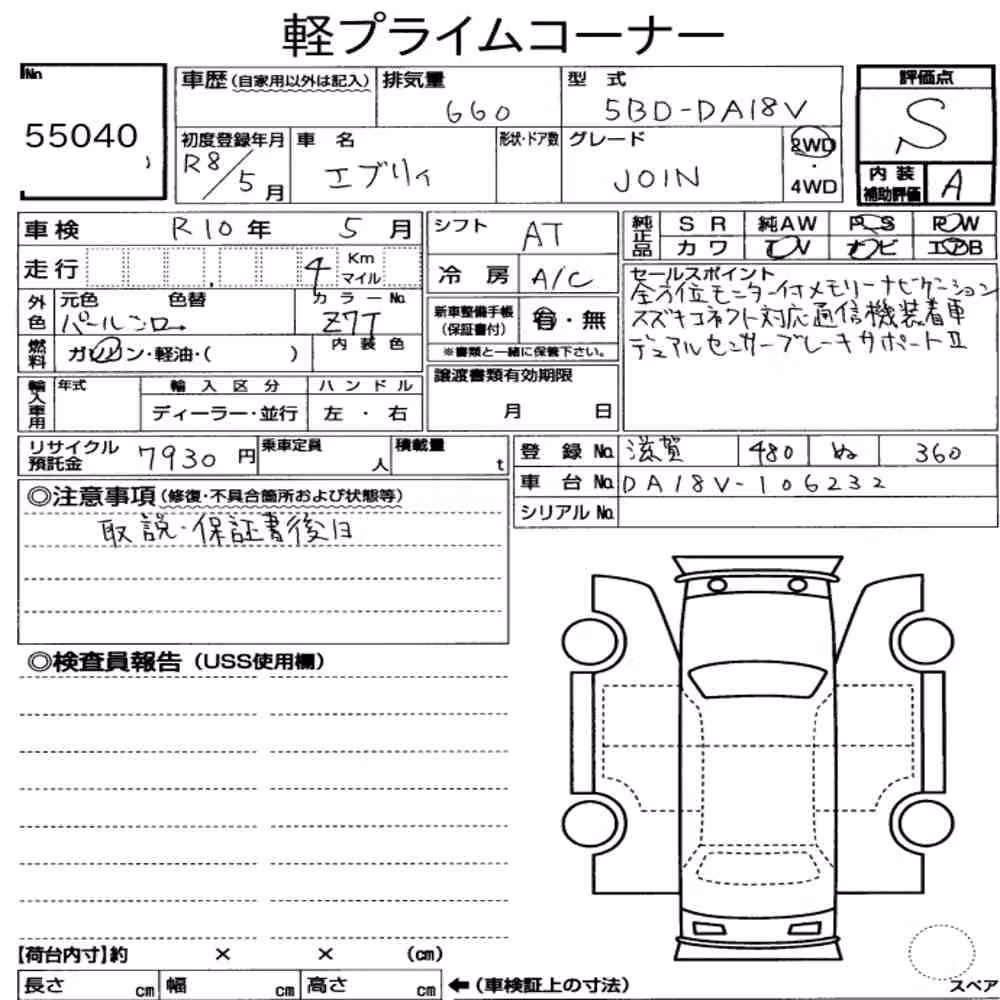 軽プライムコーナー
No
55040
車歴(自家用以外は記入)
排気量
660
型式
5BD-DA18V
評価点
S
初度登録年月
R8/5月
車名
エブリィ
形状・ドア数
グレード
JOIN
2WD
・
4WD
内装
補助評価
A
車検 R10年 5月
シフト
AT
純正品
SR 純AW PS PW
カワ TV ナビ エアB
走行 4 Km
マイル
冷房
A/C
セールスポイント
全方位モニター付メモリーナビゲーション
スズキコネクト対応通信機装着車
デュアルセンサーブレーキサポートⅡ
外色
元色 色替
パールシロ
カラーNo.
Z7T
新車整備手帳
(保証書付)
有・無
※書類と一緒に保管下さい。
燃料
ガソリン・軽油・( )
内装色
譲渡書類有効期限
月 日
輸入車用
年式
輸入区分
ディーラー・並行
ハンドル
左・右
リサイクル
預託金
7930円
乗車定員
人
積載量
t
登録No. 滋賀 480 ぬ 360
車台No. DA18V-106232
シリアルNo.
◎注意事項(修復・不具合箇所および状態等)
取説・保証書後日
◎検査員報告(USS使用欄)
【荷台内寸】約 × × (cm)
長さ cm 幅 cm 高さ cm ←(車検証上の寸法)
スペア